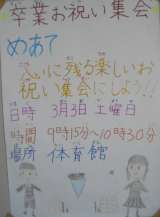 卒業お祝い集会
めあて
心に残る楽しいお
祝い集会にしよう!!
日時 3月3日 土曜日
時間 9時15分~10時30分
場所 体育館